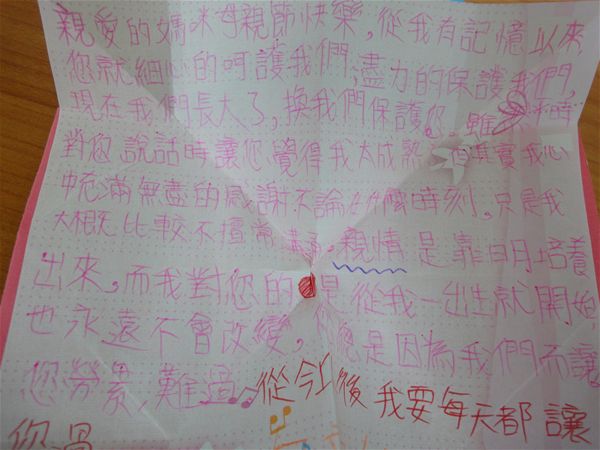 親愛的媽咪母親節快樂,從我有記憶以來
您就細心的呵護我們,盡力的保護我們,
現在我們長大了,換我們保護您。雖 平時
對您說話時讓您覺得我太成熟 但其實我心
中充滿無盡的感謝不論什麼時刻,只是我
大概比較不擅常 親情是靠 培養
出來,而我對您的 是從我一出生就開始,
也永遠不會改變, 總是因為我們而讓
您勞累,難過 從今以後我要每天都讓
您過